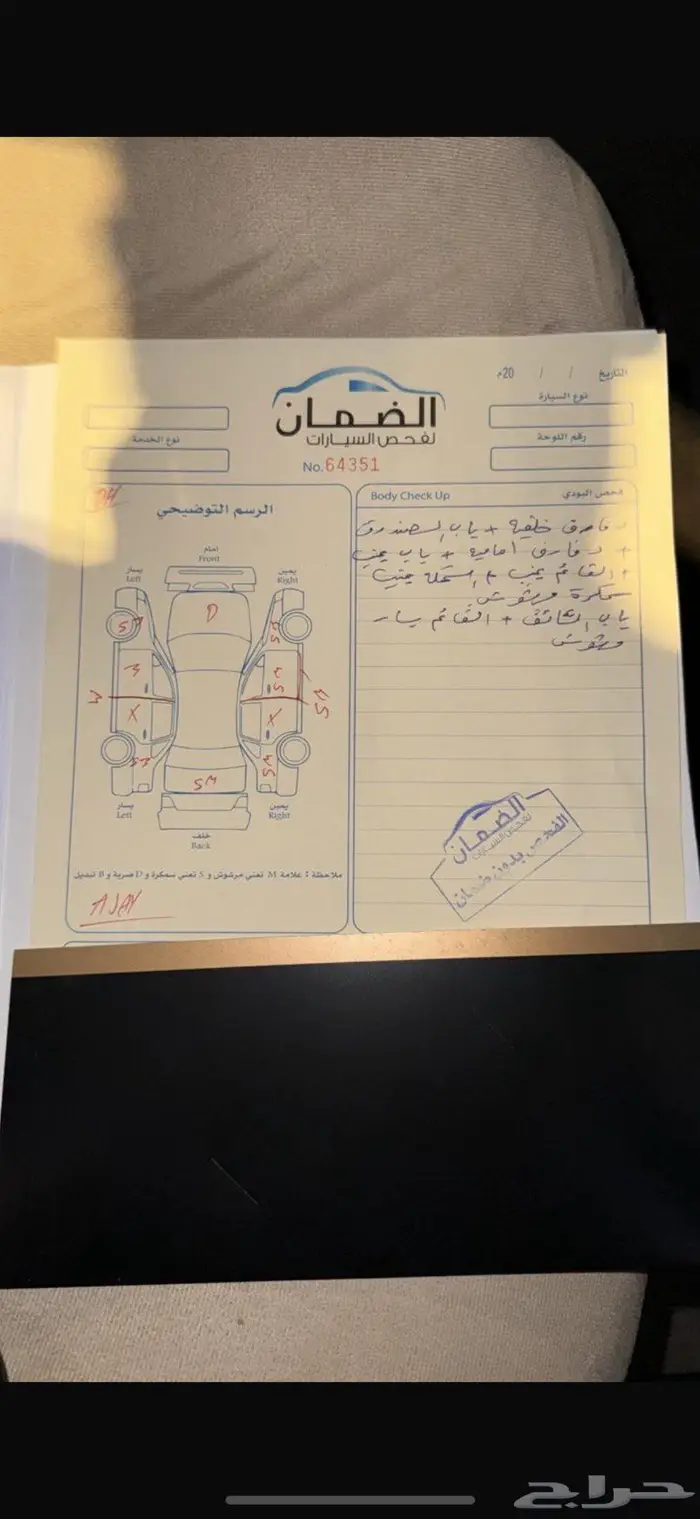 التاريخ / / 20م
نوع السيارة
رقم اللوحة
الضمان
لفحص السيارات
No.64351
نوع الخدمة
Body Check Up
فحص البودي
رفارف خلفية + باب الصندوق
+ رفارف امامية + باب يمين
+ القائم يمين +
سمكرة ومرشوش
باب السائق + القائم يسار
مرشوش
الرسم التوضيحي
امام
Front
يسار
Left
يمين
Right
D
SM
SM
M
SM
M
SM
X
X
SM
SM
SM
يسار
Left
يمين
Right
خلف
Back
ملاحظة : علامة M تعني مرشوش و S تعني سمكرة و D ضربة و B تبديل
AJAY
الضمان
لفحص السيارات
الفحص بدون ضمان
حراج